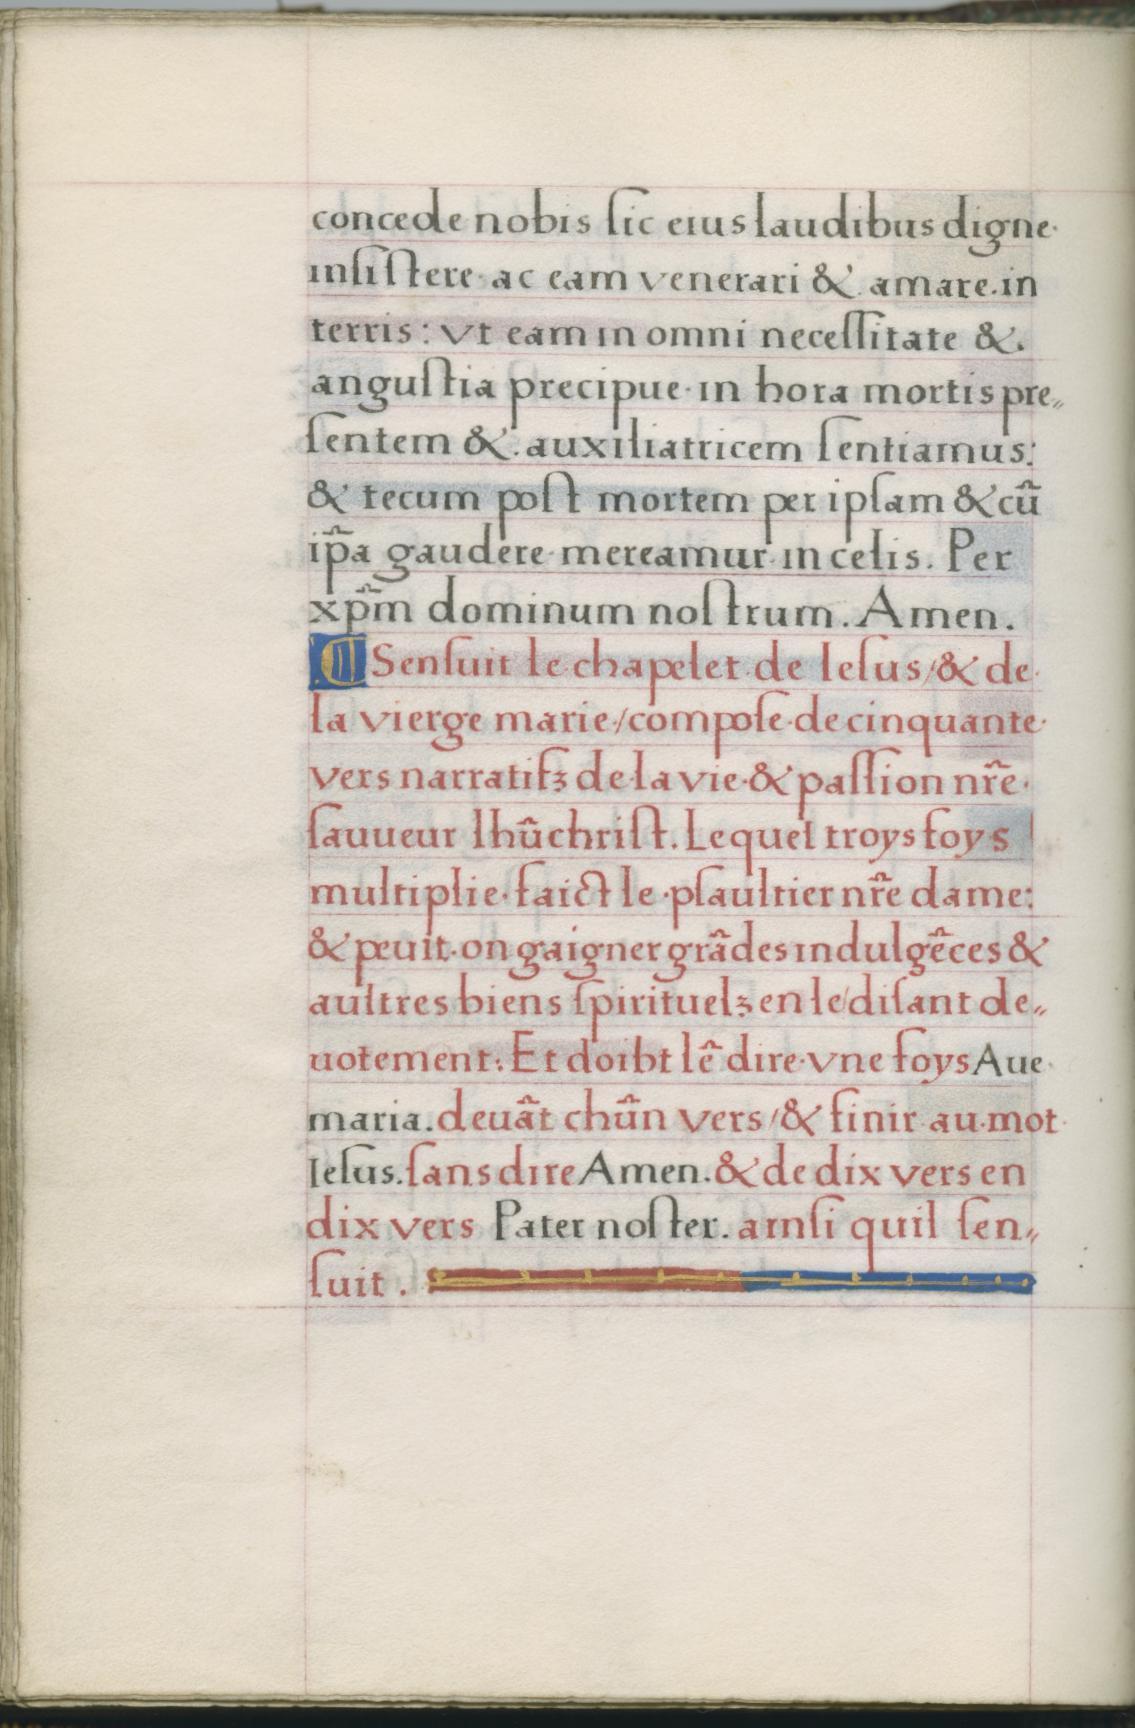 concede nobis ſic eius laudibus digne·
inſiſtere· ac eam venerari &. amare. in
terris: vt eam in omni neceſſitate &.
anguſtia precipue· in hora mortis pre„
ſentem &. auxiliatricem ſentiamus:
& tecum poſt mortem per ipſam & cũ
ip̃a gaudere· mereamur· in celis. Per
xp̃m dominum noſtrum. Amen.
¶ Senſuit le·chapelet·de Ieſus/& de·
la vierge marie/compoſe·de cinquante·
vers narratifz de·la vie·& paſſion nr̃e·
ſauueur Ihũchriſt. Lequel troys foys
multiplie· faict le·pſaultier nr̃e dame:
& peuit·on gaigner grãdes indulgẽces &
aultres biens ſpirituelz en le/diſant de„
uotement: Et doibt lẽ dire·vne foys Aue·
maria. deuãt chũn vers/& finir au·mot·
Ieſus. ſans dire Amen. & de dix vers en
dix vers Pater noſter. ainſi quil ſen„
ſuit.